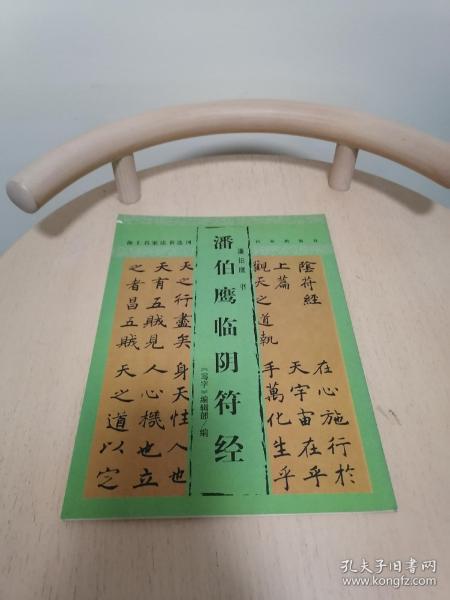 海上名家法书选刊
潘伯鹰 书
潘伯鹰临阴符经
《写字》编辑部/编
陰符經
上篇
觀天之道執
天之行盡矣
天有五賊見
之者昌五賊
在心施行於
天宇宙在乎
手萬化生乎
身天性人也
人心機也立
天之道以定
孔夫子旧书网
www.kongfz.com